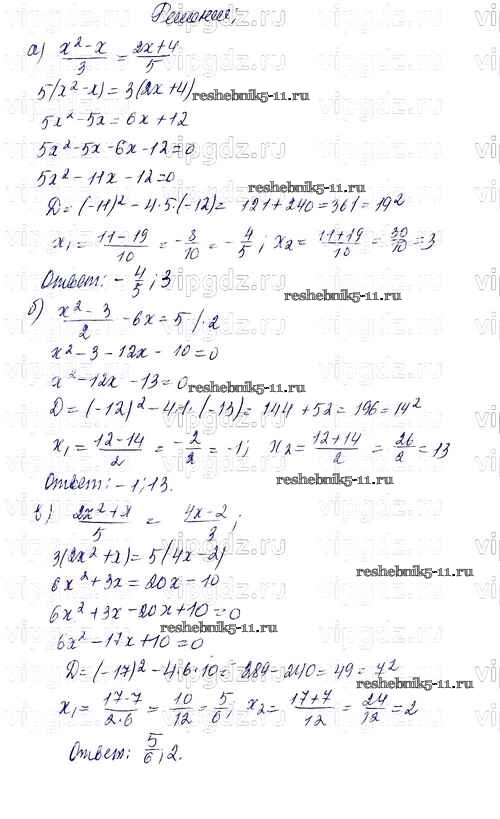 Решение;
а) x² - x / 3 = 2x + 4 / 5
5(x² - x) = 3(2x + 4)
reshebnik5-11.ru
5x² - 5x = 6x + 12
5x² - 5x - 6x - 12 = 0
5x² - 11x - 12 = 0
reshebnik5-11.ru
D = (-11)² - 4·5(-12) = 121 + 240 = 361 = 19²
x₁ = 11 - 19 / 10 = - 8 / 10 = - 4 / 5 ; x₂ = 11 + 19 / 10 = 30 / 10 = 3
Ответ: - 4 / 5 ; 3
reshebnik5-11.ru
б) x² - 3 / 2 - 6x = 5 / · 2
x² - 3 - 12x - 10 = 0
x² - 12x - 13 = 0
reshebnik5-11.ru
D = (-12)² - 4·1·(-13) = 144 + 52 = 196 = 14²
x₁ = 12 - 14 / 2 = - 2 / 2 = -1; x₂ = 12 + 14 / 2 = 26 / 2 = 13
Ответ: -1; 13.
reshebnik5-11.ru
в) 2x² + x / 5 = 4x - 2 / 3 ;
3(2x² + x) = 5(4x - 2)
6x² + 3x = 20x - 10
6x² + 3x - 20x + 10 = 0
reshebnik5-11.ru
6x² - 17x + 10 = 0
D = (-17)² - 4·6·10 = 289 - 240 = 49 = 7²
reshebnik5-11.ru
x₁ = 17 - 7 / 2·6 = 10 / 12 = 5 / 6 ; x₂ = 17 + 7 / 12 = 24 / 12 = 2
Ответ: 5 / 6 ; 2.
vipgdz.ru